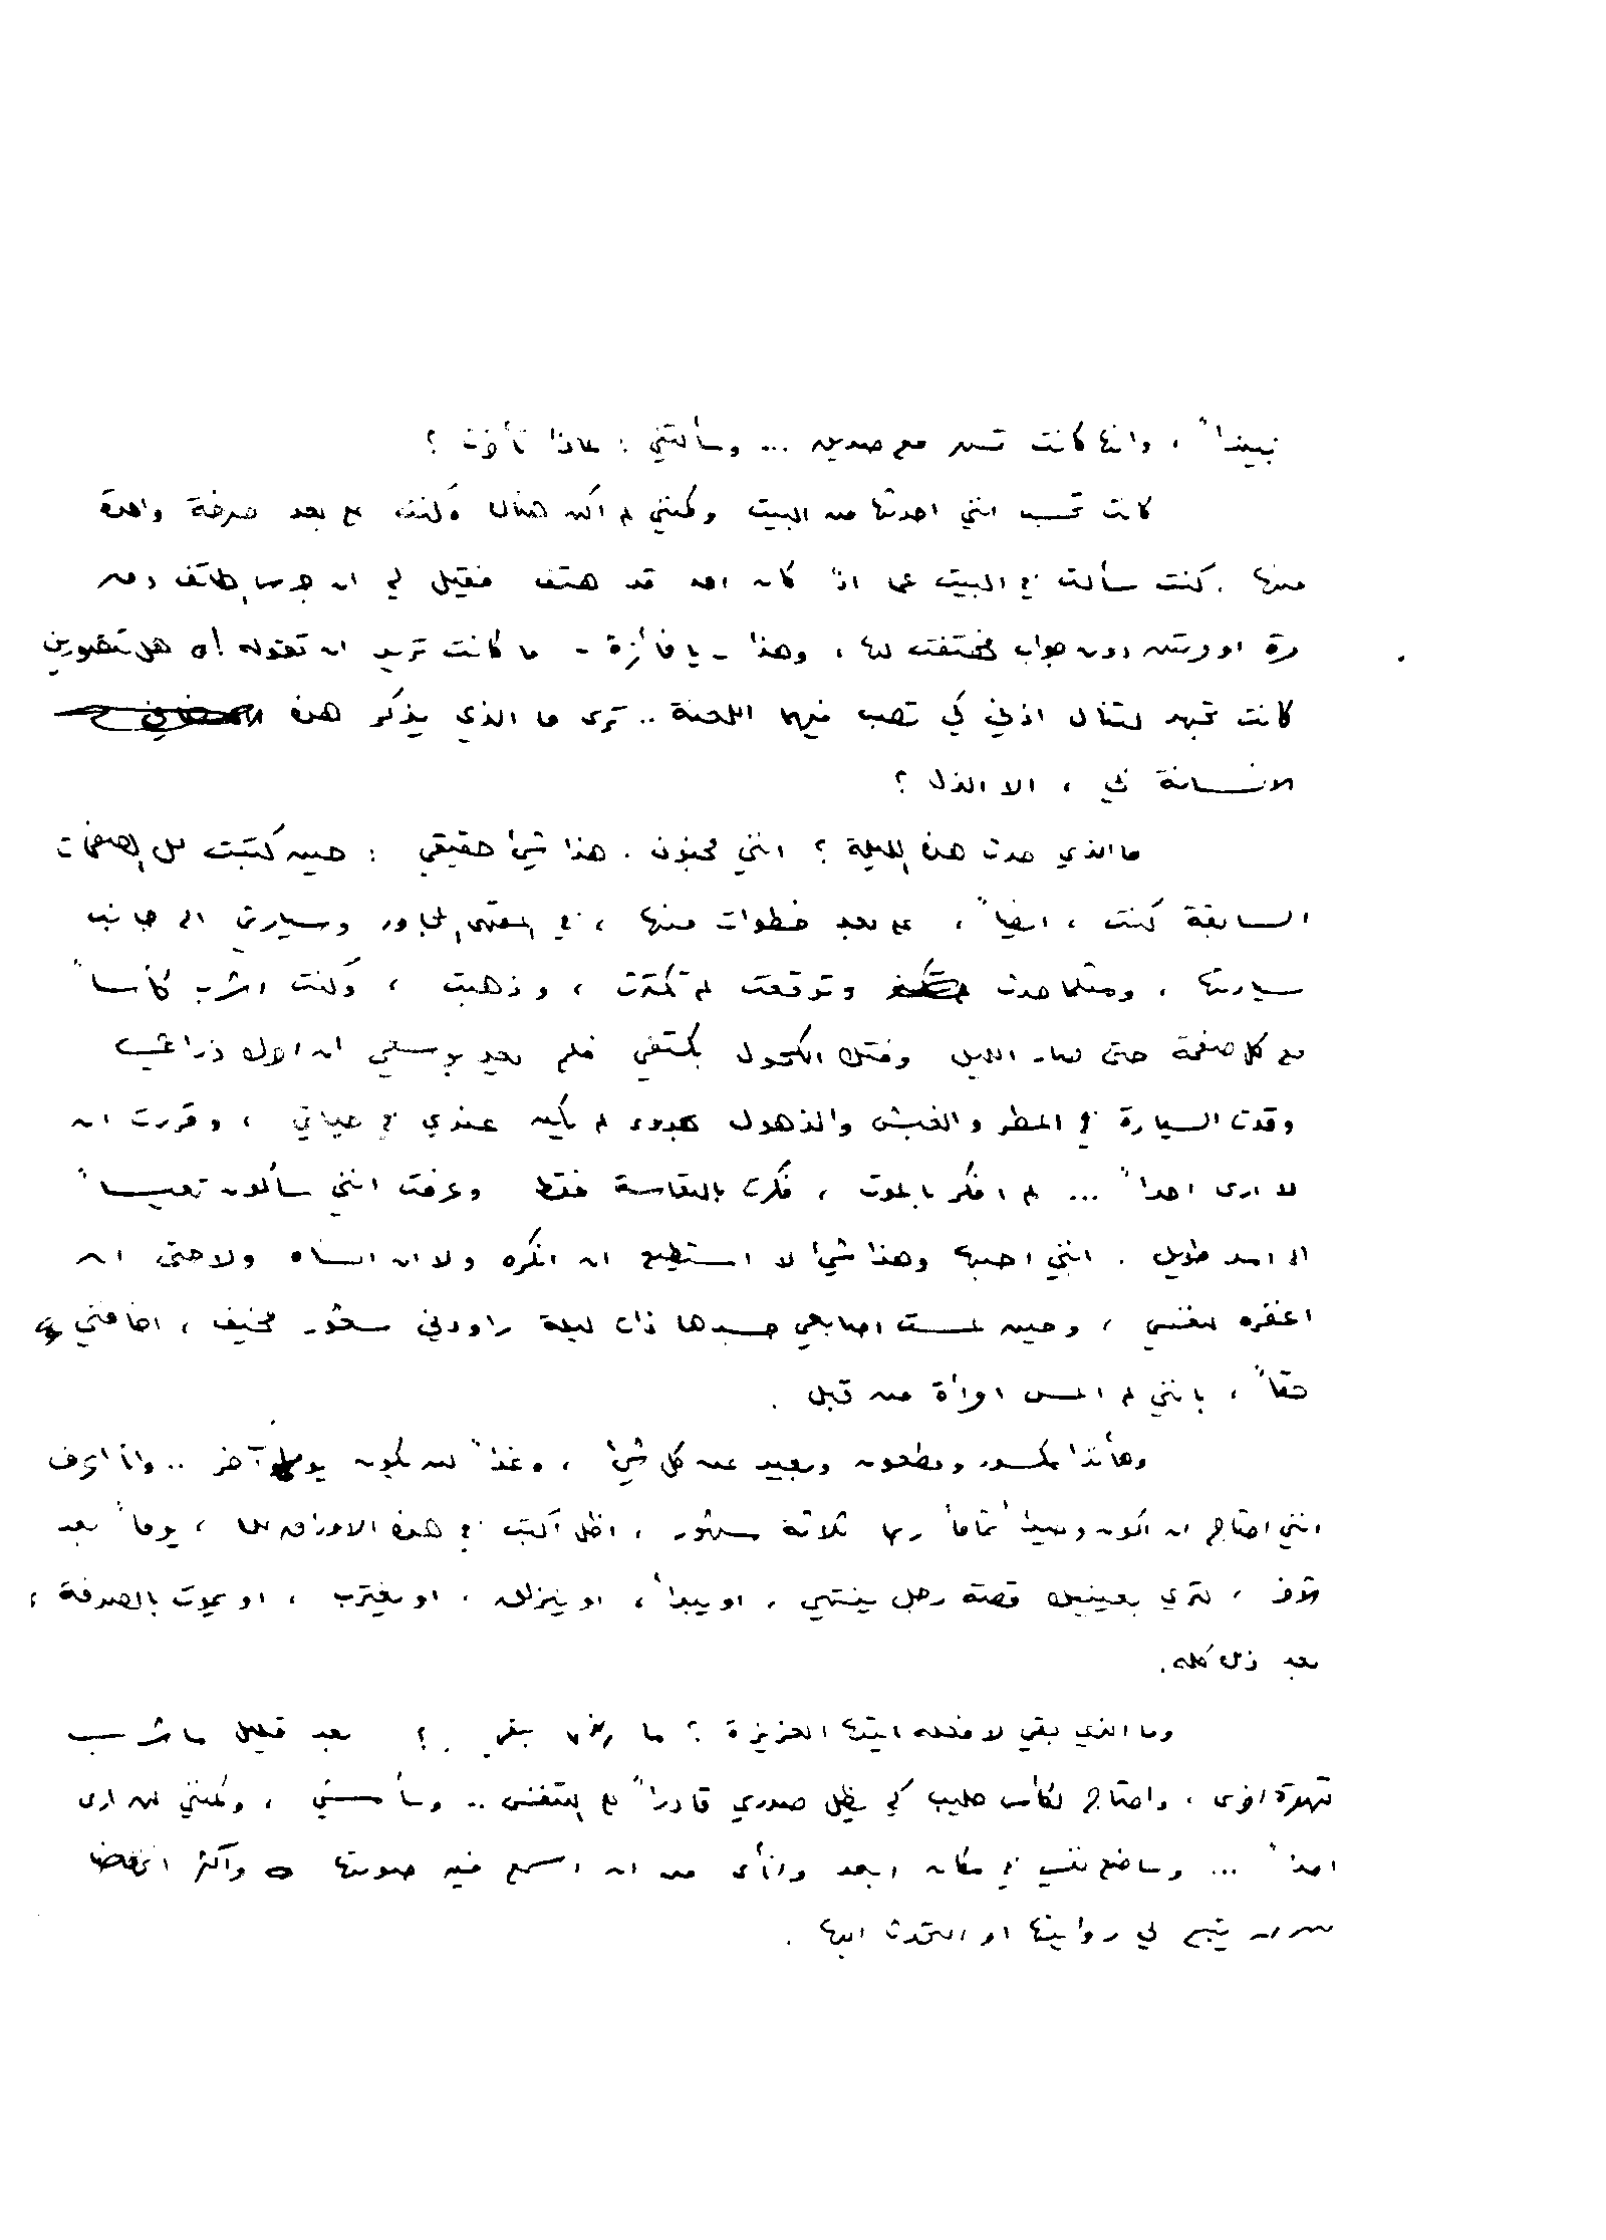 نبيذاً ، وانها كانت تسهر مع صديق ... وسألتني : لماذا تأخرت ؟
كانت تحسب انني احدثها من البيت ولكنني لم اكن هناك وكنت على بعد صرخة واحدة
منها . كنت سألت في البيت عما اذا كان احد قد هتف فقيل لي ان جرس الهاتف دق
مرة او مرتين دون جواب فهتفت لها ، وهذا - يا فائزة - ما كانت تريد ان تقوله ! هل تتصورين
كانت تجهد لتنال اذني كي تصب فيهما اللعنة .. ترى ما الذي يذكر هذه
الانسانة في ، الا الذل ؟
ما الذي حدث هذه الليلة ؟ انني مجنون . هذا شيء حقيقي : حين كتبت لك الصفحات
السابقة كنت ، ايضاً ، على بعد خطوات منها ، في المقهى المجاور وسيارتي الى جانب
سيارتها ، ومثلما حدث وتوقعت لم تكترث ، وذهبت ، وكنت اشرب كأساً
مع كل صفحة حتى الليل وفتك الكحول بكتفي فلم يعد بوسعي ان احرك ذراعي
وقدت السيارة في المطر والغبش والذهول بهدوء لم يكن عندي في حياتي ، وقررت ان
لا ارى احداً ... لم افكر بالموت ، فكرت بالتعاسة فقط وعرفت انني سأكون تعيساً
الى امد طويل . انني احبها وهذا شيء لا استطيع ان انكره ولا ان انساه ولا حتى ان
اغفره لنفسي ، وحين لمست اصابعي جسدها ذات ليلة راودني شعور مخيف ، اخافني
حقاً ، بانني لم المس امرأة من قبل .
وهأنذا مكسور ومطعون وبعيد عن كل شيء ، وغداً لن يكون يوماً آخر .. وانا اعرف
انني احتاج ان اكون وحيداً تماماً ربما ثلاثة شهور ، اظل اكتب في هذه الاوراق لك ، يوماً بعد
آخر ، لتري بعينيك قصة رجل ينتهي . او يبدأ ، او ينزلق . او يغترب ، او يموت بالصدفة ،
بعد ذلك كله .
وما الذي بقي لافعله ايتها العزيزة ؟ ما بقي ؟ بعد قليل سأشرب
قهوة اخرى ، واحتاج لكأس حليب كي يظل صدري قادراً على التنفس .. وسأمشي ، ولكنني لن ارى
احداً ... وساضع نفسي في مكان ابعد وانأى من ان اسمع فيه صوتها واكثر انخفاضا
من ان يتيح لي رؤيتها او التحدث اليها .